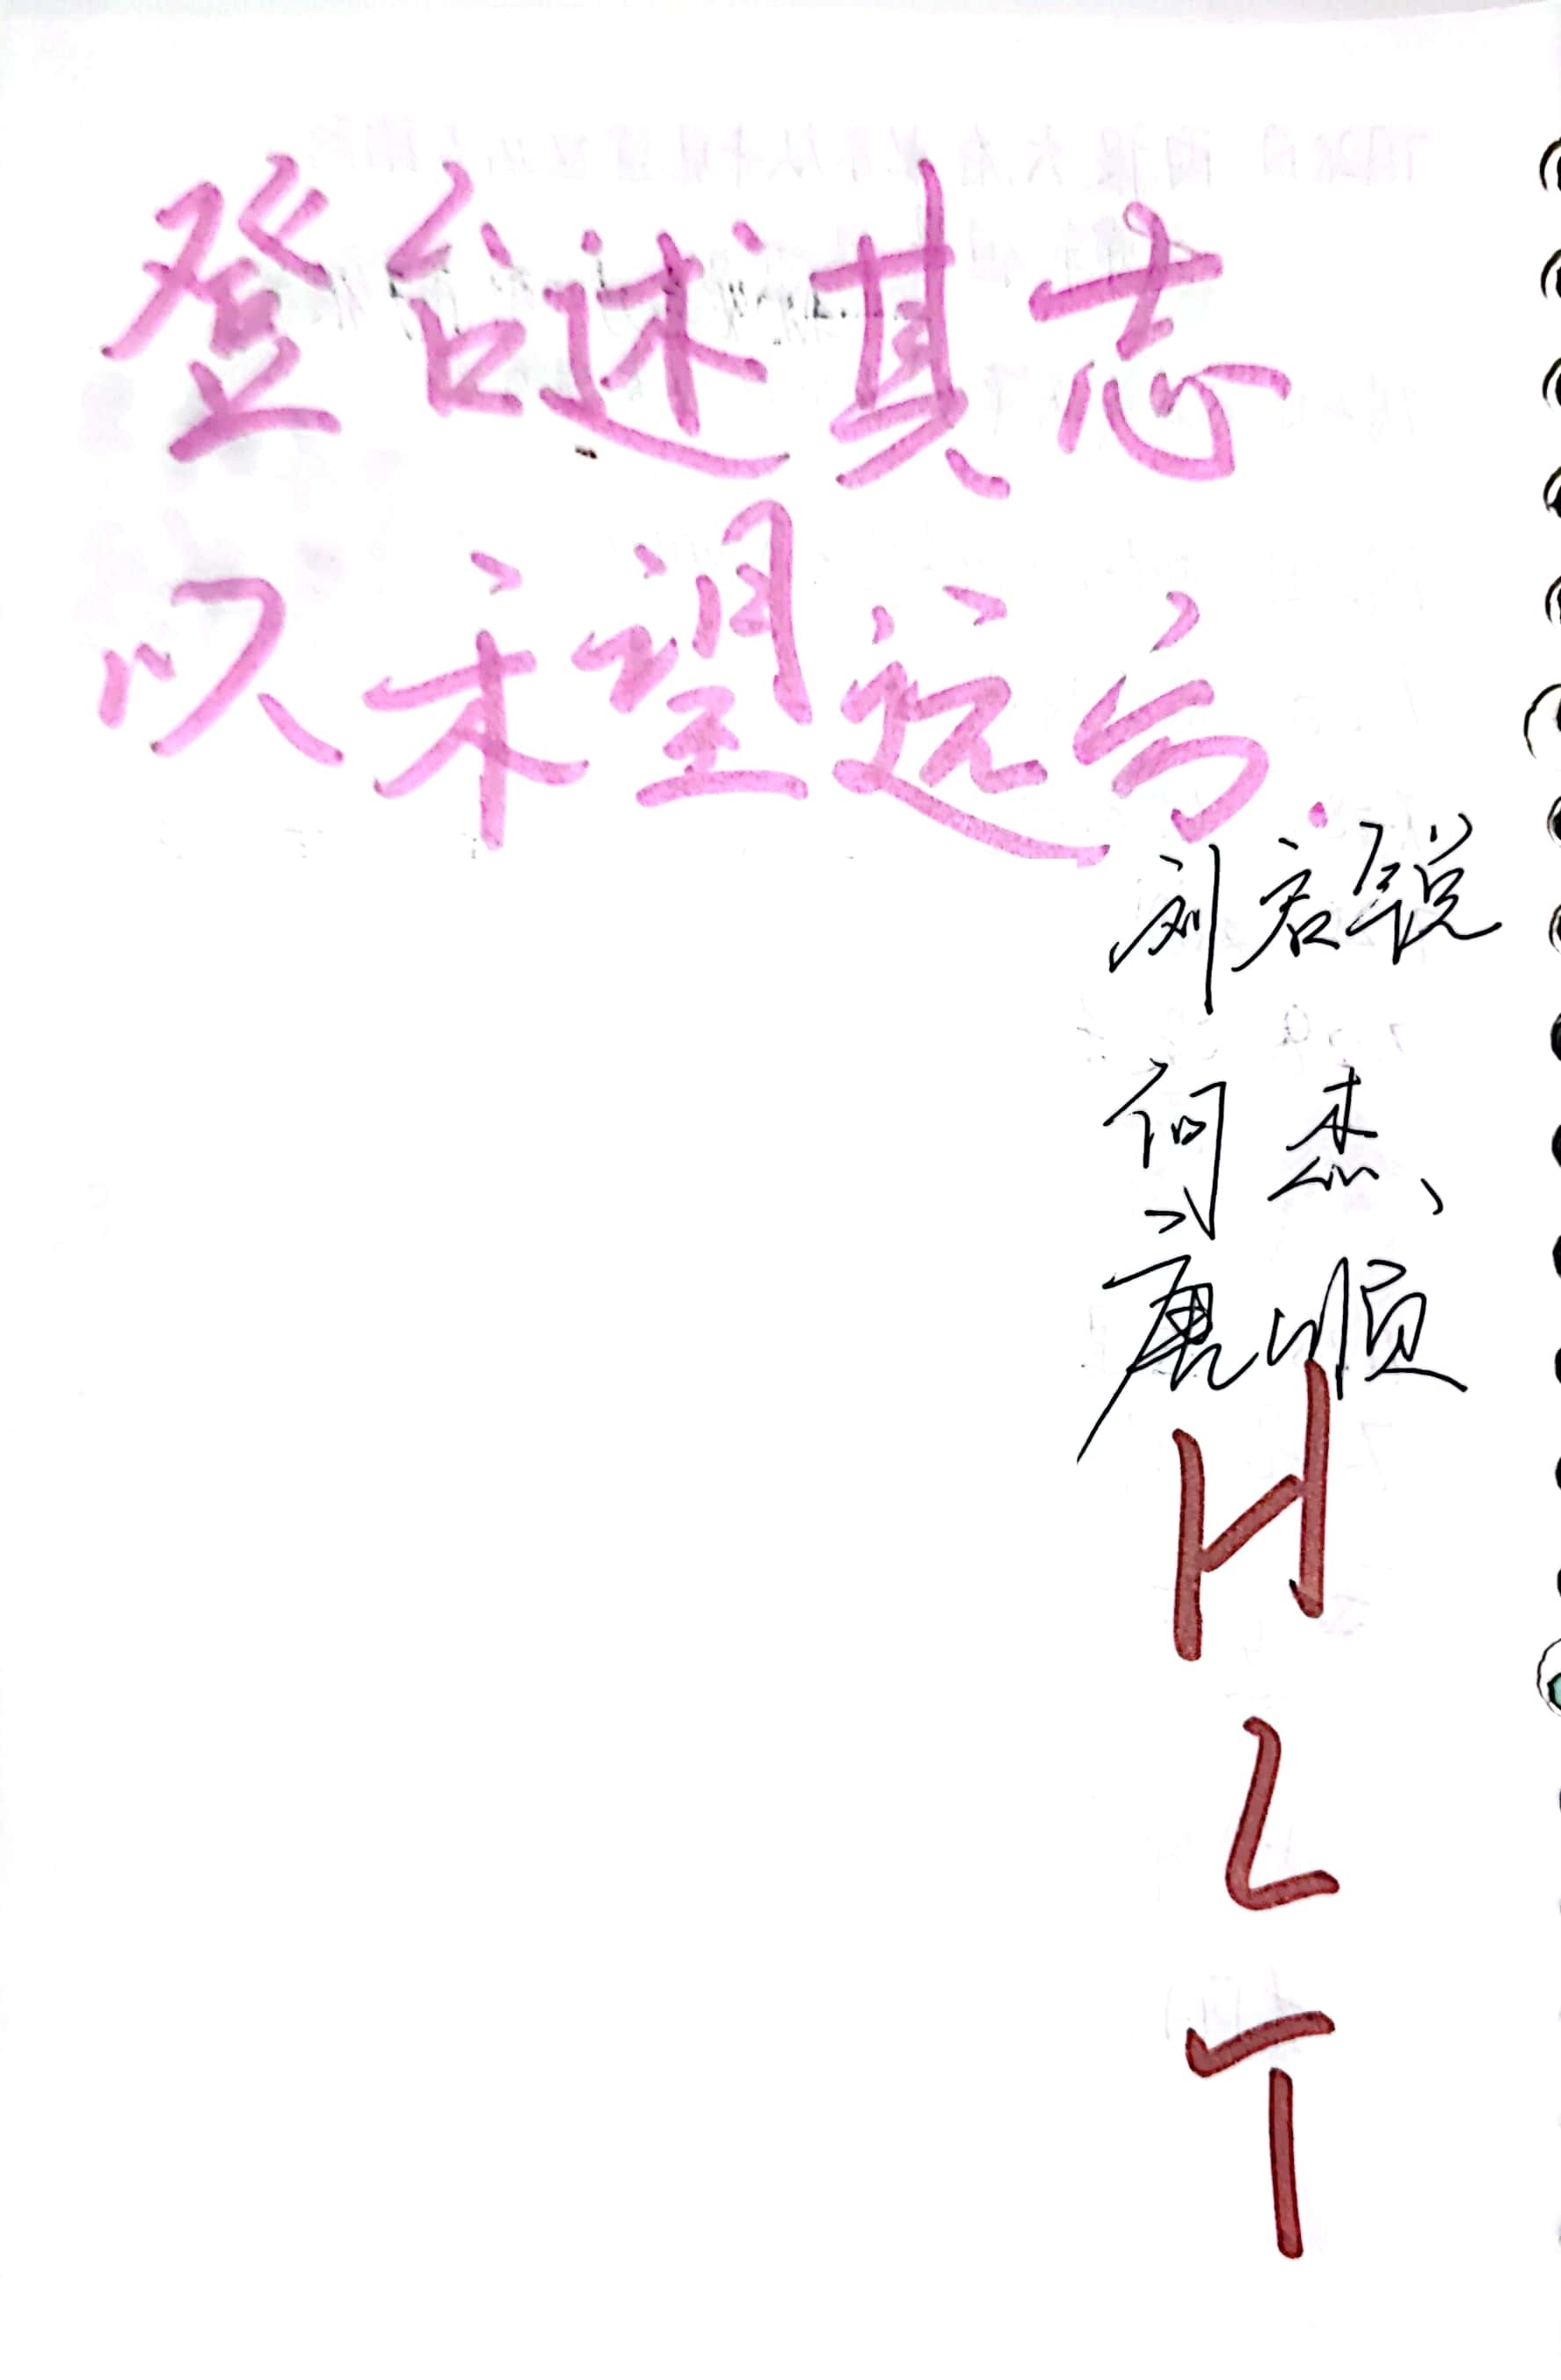 登台述其志
以求望远方.
刘君锐
何杰、
唐顺
H
L
T